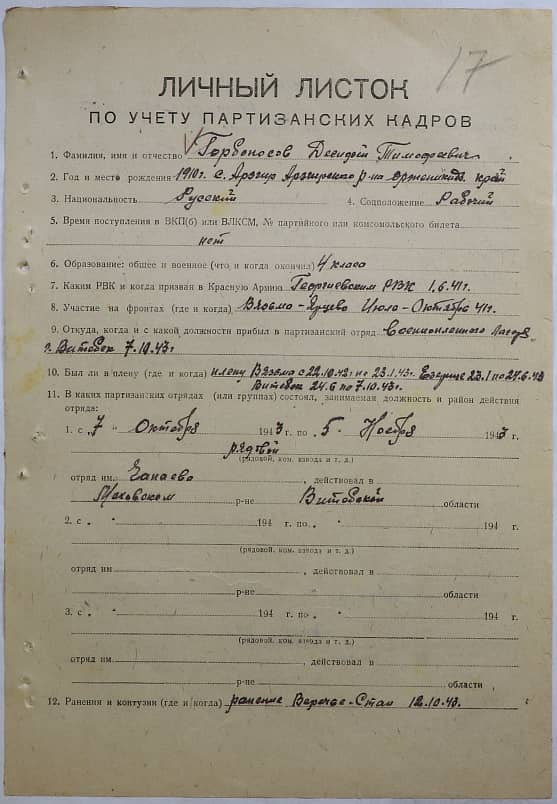 17
ЛИЧНЫЙ ЛИСТОК
ПО УЧЕТУ ПАРТИЗАНСКИХ КАДРОВ
1. Фамилия, имя и отчество Горбоносов Тимофеевич
2. Год и место рождения 1910 г. с. Арзгир Арзгирского р-на Орженикидз. край
3. Национальность Русский 4. Соцположение Рабочий
5. Время поступления в ВКП(б) или ВЛКСМ, № партийного или комсомольского билета
нет
6. Образование: общее и военное (что и когда окончил) 4 класса
7. Каким РВК и когда призван в Красную Армию Георгиевским РВК 1.6.41г.
8. Участие на фронтах (где и когда) Вязьма-Ярцево Июль-Октябрь 41г.
9. Откуда, когда и с какой должности прибыл в партизанский отряд Военнопленного Лагеря
г. Витебск 7.10.43г
10. Был ли в плену (где и когда) плену Вязьма с по 23.1.43г. 23.1 по 24.6.43
Витебск 24.6 по 7.10.43г.
11. В каких партизанских отрядах (или группах) состоял, занимаемая должность и район действия
отряда:
1. с „7 “ Октября 1943 г. по „5 “ Ноября 1943 г.
рядовой
(рядовой, ком. взвода и т. д.)
отряд им. Чапаева , действовал в
Меховском р-не Витебской области
2. с „ “ 194 г. по „ “ 194 г.
(рядовой, ком. взвода и т. д.)
отряд им. , действовал в
р-не области
3. с „ “ 194 г. по „ “ 194 г.
(рядовой, ком. взвода и т. д.)
отряд им. , действовал в
р-не области
12. Ранения и контузии (где и когда) ранение 12.10.43.